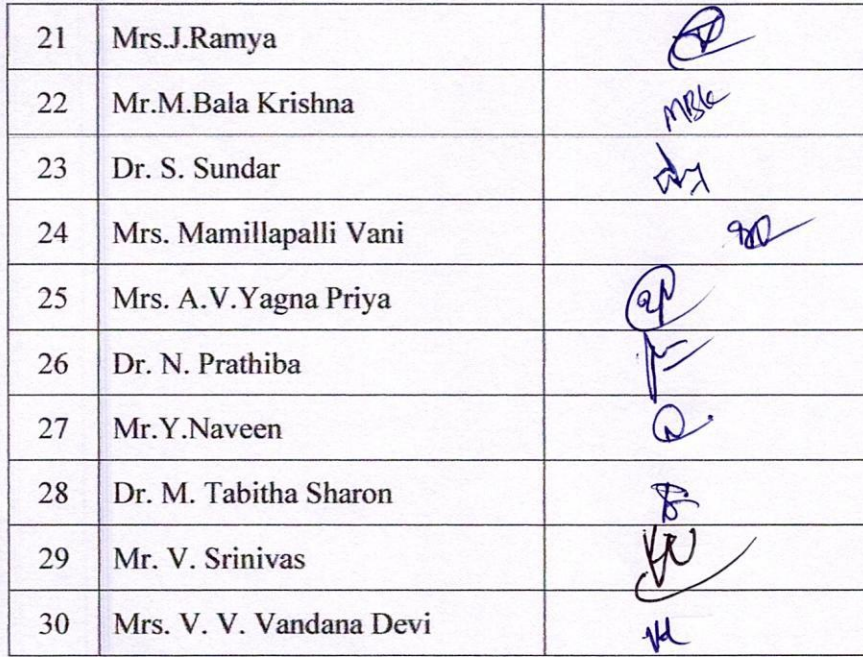 21 Mrs.J.Ramya
22 Mr.M.Bala Krishna MBK
23 Dr. S. Sundar
24 Mrs. Mamillapalli Vani
25 Mrs. A.V.Yagna Priya
26 Dr. N. Prathiba
27 Mr.Y.Naveen
28 Dr. M. Tabitha Sharon
29 Mr. V. Srinivas
30 Mrs. V. V. Vandana Devi